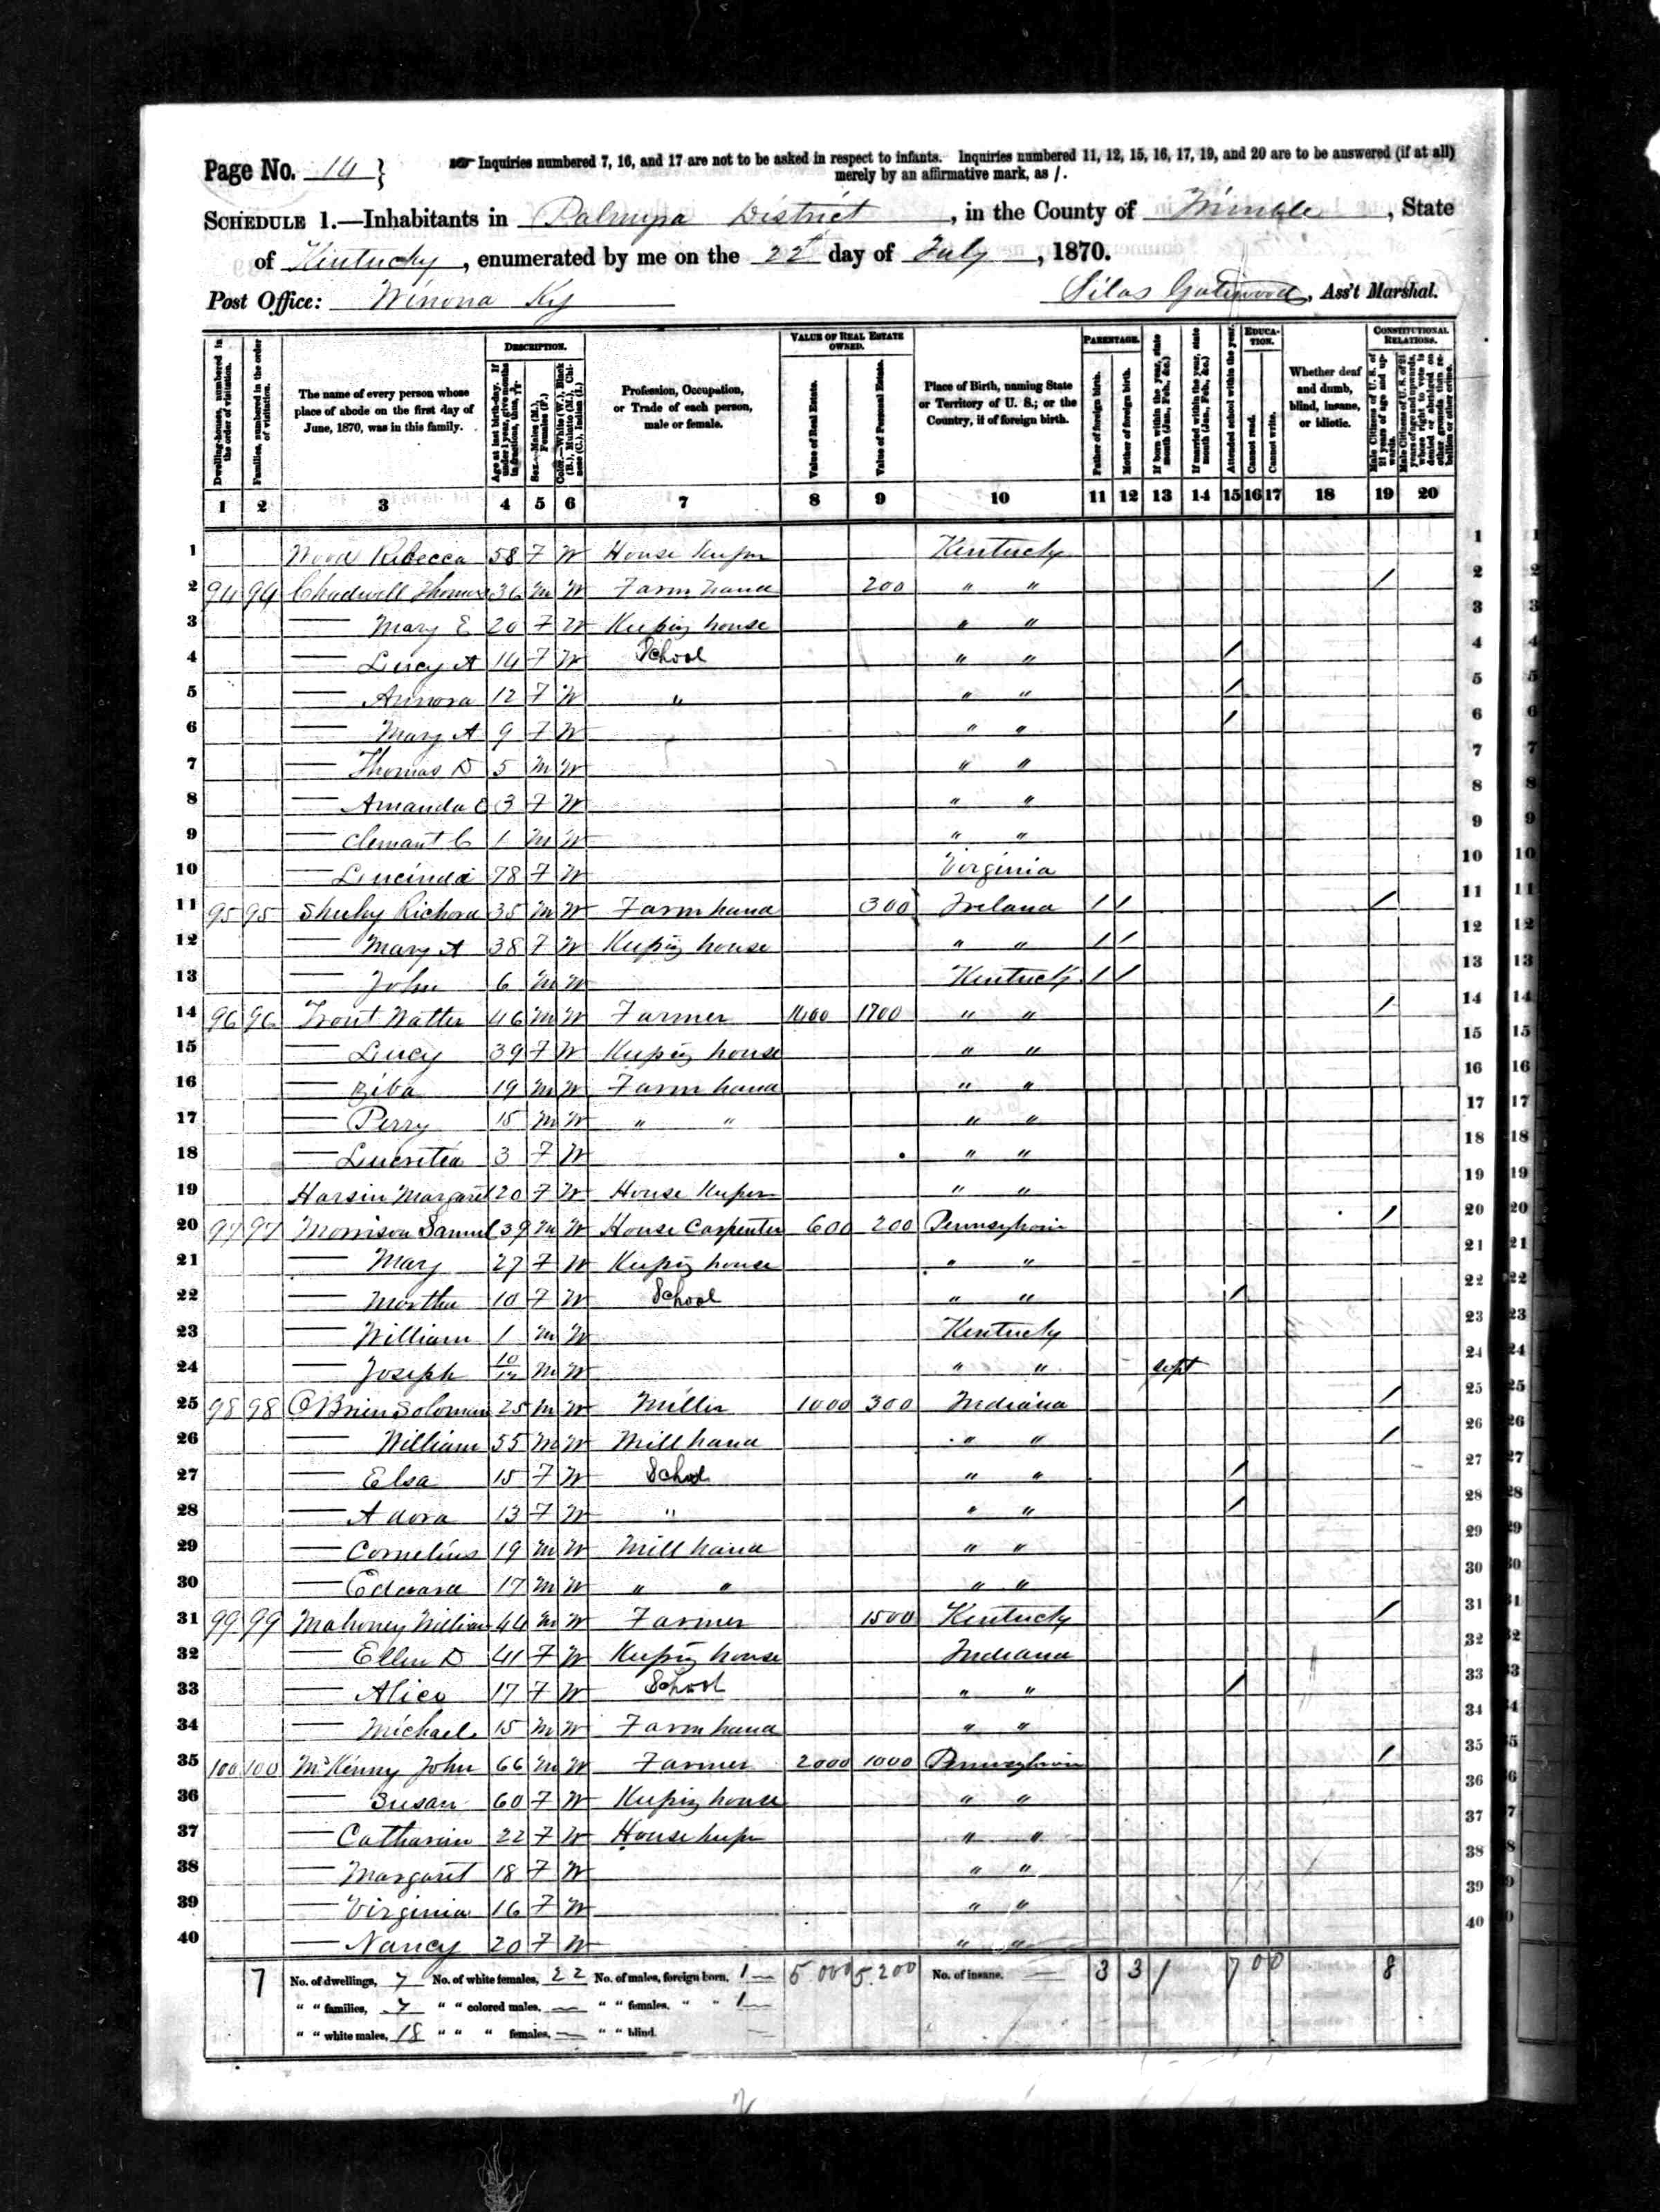 Page No. 14 } Inquiries numbered 7, 16, and 17 are not to be asked in respect to infants. Inquiries numbered 11, 12, 15, 16, 17, 19, and 20 are to be answered (if at all)
merely by an affirmative mark, as /.
SCHEDULE 1.—Inhabitants in Palmyra District, in the County of Trimble, State
of Kentucky, enumerated by me on the 22d day of July, 1870.
Post Office: Winona Ky Silas Gatewood, Ass't Marshal.
Dwelling-houses, numbered in the order of visitation.
Families, numbered in the order of visitation.
The name of every person whose place of abode on the first day of June, 1870, was in this family.
DESCRIPTION.
Age at last birth-day. If under 1 year, give months in fractions, thus, 3/12
Sex.—Males (M.), Females (F.)
Color.—White (W.), Black (B.), Mulatto (M.), Chinese (C.), Indian (I.)
Profession, Occupation, or Trade of each person, male or female.
VALUE OF REAL ESTATE OWNED.
Value of Real Estate.
Value of Personal Estate.
Place of Birth, naming State or Territory of U. S.; or the Country, if of foreign birth.
PARENTAGE.
Father of foreign birth.
Mother of foreign birth.
If born within the year, state month (Jan., Feb., &c.)
If married within the year, state month (Jan., Feb., &c.)
Attended school within the year.
EDUCATION.
Cannot read.
Cannot write.
Whether deaf and dumb, blind, insane, or idiotic.
CONSTITUTIONAL RELATIONS.
Male Citizens of U. S. of 21 years of age and upwards.
Male Citizens of U. S. of 21 years of age and upwards, whose right to vote is denied or abridged on other grounds than rebellion or other crime.
1 2 3 4 5 6 7 8 9 10 11 12 13 14 15 16 17 18 19 20
1 Wood Rebecca 58 F W House Keeper Kentucky 1
2 94 94 Chadwell Thomas 36 M W Farm hand 200 " " / 2
3 — Mary E 20 F W Keeping house " " 3
4 — Lucy A 14 F W School " " / 4
5 — Annora 12 F W " " " / 5
6 — Mary A 9 F W " " / 6
7 — Thomas D 5 M W " " 7
8 — Amanda E 3 F W " " 8
9 — Clemant C 1 M W " " 9
10 — Lucinda 78 F W Virginia 10
11 95 95 Sheehy Richard 35 M W Farm hand 300 Ireland / / / 11
12 — Mary A 38 F W Keeping house " " / / 12
13 — John 6 M W Kentucky / / 13
14 96 96 Trout Walter 46 M W Farmer 1400 1700 " " / 14
15 — Lucy 39 F W Keeping house " " 15
16 — Ziba 19 M W Farm hand " " 16
17 — Perry 15 M W " " " " 17
18 — Lucretia 3 F W " " 18
19 Harsin Margaret 20 F W House Keeper " " 19
20 97 97 Morrison Samuel 39 M W House Carpenter 600 200 Pennsylvania / 20
21 — Mary 27 F W Keeping house " " 21
22 — Martha 10 F W School " " / 22
23 — William 1 M W Kentucky 23
24 — Joseph 10/12 M W " " Sept 24
25 98 98 O Brien Soloman 25 M W Miller 1000 300 Indiana / 25
26 — William 55 M W Mill hand " " / 26
27 — Elsa 15 F W School " " / 27
28 — Adora 13 F W " " " / 28
29 — Cornelius 19 M W Mill hand " " 29
30 — Edward 17 M W " " " " 30
31 99 99 Mahoney William 44 M W Farmer 1500 Kentucky / 31
32 — Ellen D 41 F W Keeping house Indiana 32
33 — Alice 17 F W School " " / 33
34 — Michael 15 M W Farm hand " " 34
35 100 100 McKenny John 66 M W Farmer 2000 1000 Pennsylvania / 35
36 — Susan 60 F W Keeping house " " 36
37 — Catharine 22 F W House keeper " " 37
38 — Margaret 18 F W " " 38
39 — Virginia 16 F W " " 39
40 — Nancy 20 F W " " 40
7 No. of dwellings, 7 No. of white females, 22 No. of males, foreign born, 1 5 000 5.200 No. of insane. — 3 3 1 7 0 0 8
" " families, 7 " " colored males, — " " females, " " 1
" " white males, 18 " " " females, — " " blind. —